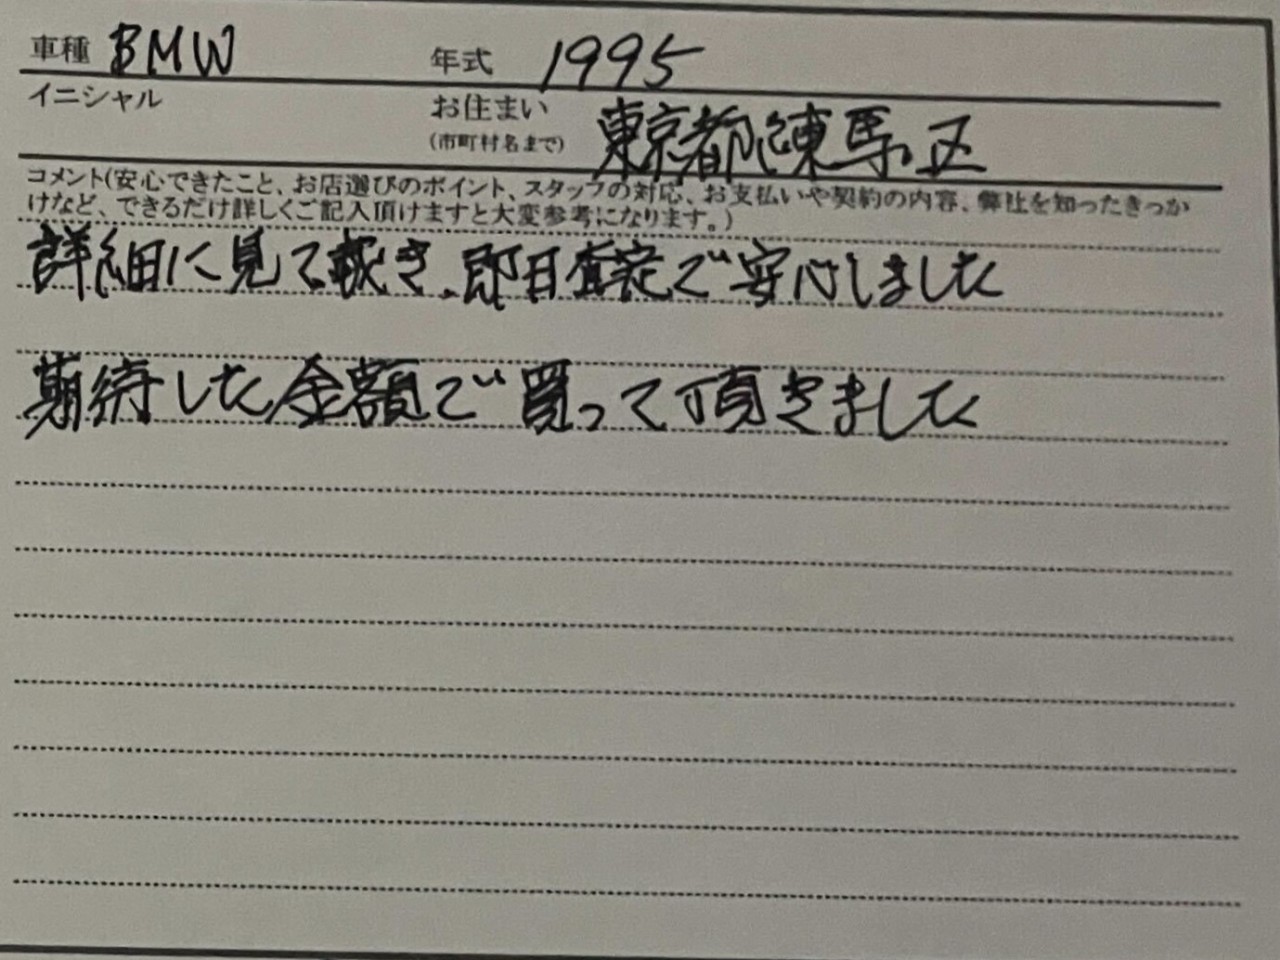 車種 BMW 年式 1995
イニシャル お住まい (市町村名まで) 東京都練馬区
コメント(安心できたこと、お店選びのポイント、スタッフの対応、お支払いや契約の内容、弊社を知ったきっか
けなど、できるだけ詳しくご記入頂けますと大変参考になります。)
詳細に見て戴き、即日査定で安心しました
期待した金額で買って頂きました